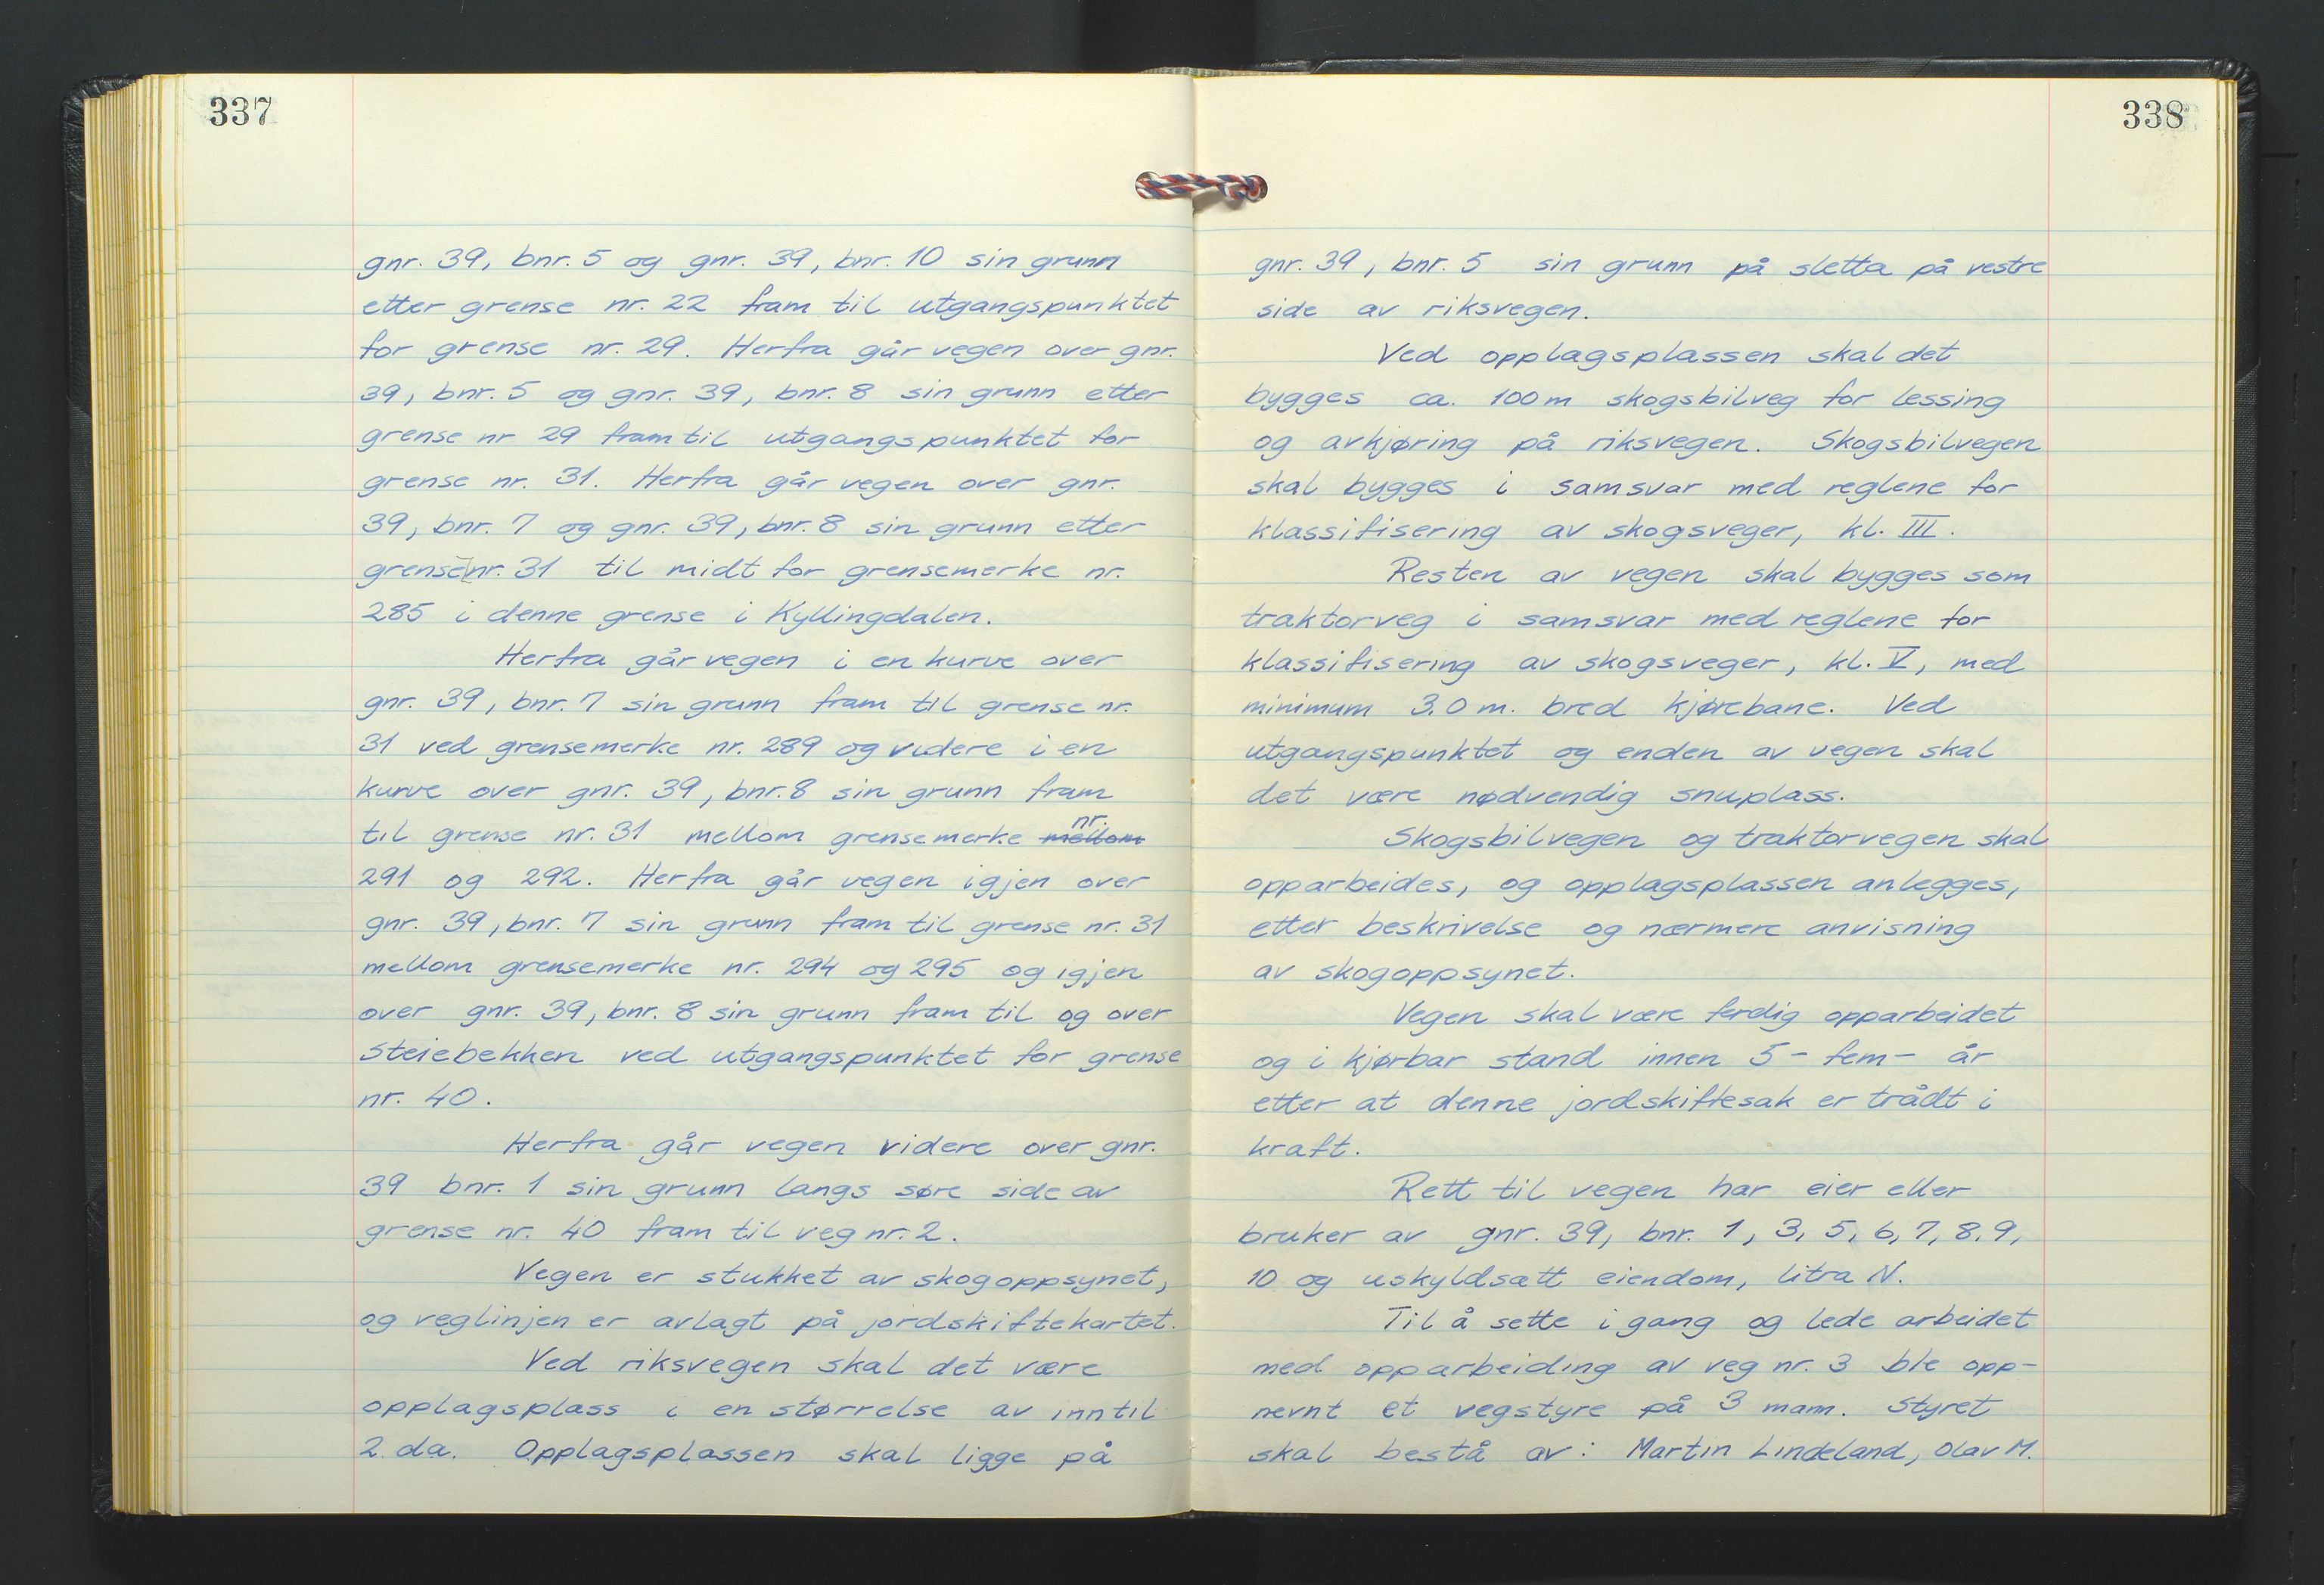 337
gnr. 39, bnr. 5 og gnr. 39, bnr. 10 sin grunn
etter grense nr. 22 fram til utgangspunktet
for grense nr. 29. Herfra går vegen over gnr.
39, bnr. 5 og gnr. 39, bnr. 8 sin grunn etter
grense nr 29 fram til utgangspunktet for
grense nr. 31. Herfra går vegen over gnr.
39, bnr. 7 og gnr. 39, bnr. 8 sin grunn etter
grense nr. 31 til midt for grensemerke nr.
285 i denne grense i Kyllingdalen.
Herfra går vegen i en kurve over
gnr. 39, bnr. 7 sin grunn fram til grense nr.
31 ved grensemerke nr. 289 og videre i en
kurve over gnr. 39, bnr. 8 sin grunn fram
til grense nr. 31 mellom grensemerke mellom nr.
291 og 292. Herfra går vegen igjen over
gnr. 39, bnr. 7 sin grunn fram til grense nr. 31
mellom grensemerke nr. 294 og 295 og igjen
over gnr. 39, bnr. 8 sin grunn fram til og over
Steiebekken ved utgangspunktet for grense
nr. 40.
Herfra går vegen videre over gnr.
39 bnr. 1 sin grunn langs søre side av
grense nr. 40 fram til veg nr. 2.
Vegen er stukket av skogoppsynet,
og veglinjen er avlagt på jordskiftekartet.
Ved riksvegen skal det være
opplagsplass i en størrelse av inntil
2 da. Opplagsplassen skal ligge på
338
gnr. 39, bnr. 5 sin grunn på sletta på vestre
side av riksvegen.
Ved opplagsplassen skal det
bygges ca. 100 m skogsbilveg for lessing
og avkjøring på riksvegen. Skogsbilvegen
skal bygges i samsvar med reglene for
klassifisering av skogsveger, kl. III.
Resten av vegen skal bygges som
traktorveg i samsvar med reglene for
klassifisering av skogsveger, kl. V, med
minimum 3.0 m. bred kjørebane. Ved
utgangspunktet og enden av vegen skal
det være nødvendig snuplass.
Skogsbilvegen og traktorvegen skal
opparbeides, og opplagsplassen anlegges,
etter beskrivelse og nærmere anvisning
av skogoppsynet.
Vegen skal være ferdig opparbeidet
og i kjørbar stand innen 5 - fem - år
etter at denne jordskiftesak er trådt i
kraft.
Rett til vegen har eier eller
bruker av gnr. 39, bnr. 1, 3, 5, 6, 7, 8, 9,
10 og uskyldsatt eiendom, litra N.
Til å sette i gang og lede arbeidet
med opparbeiding av veg nr. 3 ble opp-
nevnt et vegstyre på 3 mann. Styret
skal bestå av: Martin Lindeland, Olav M.